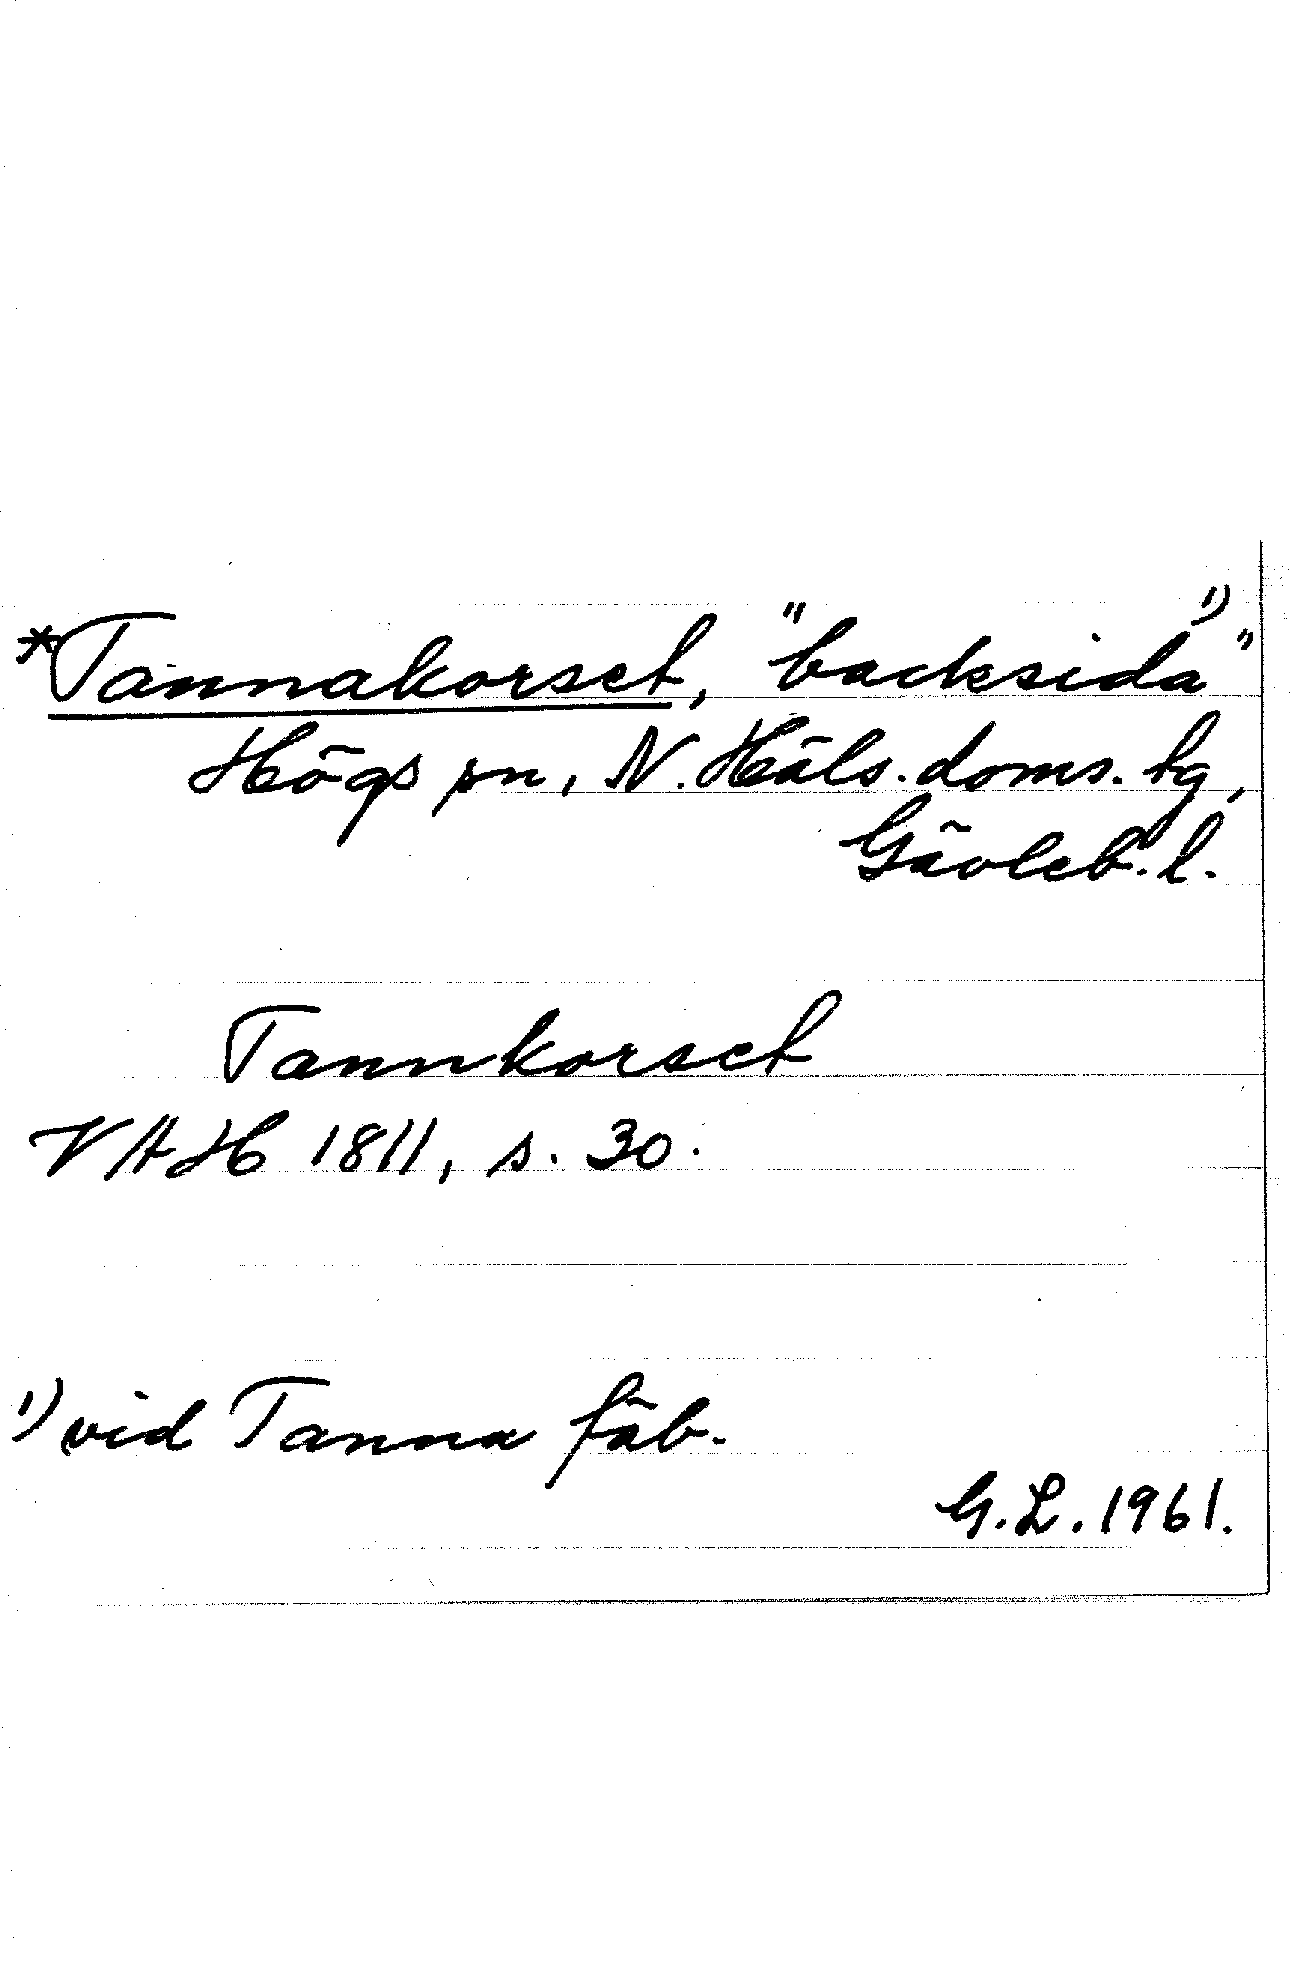 *Tannakorset, "backsida¹⁾"
Högs sn, N. Häls. doms. hg,
Gävleb. l.
Tannkorset
VAH 1811, s. 30.
¹⁾ vid Tanna fäb.
G.L. 1961.